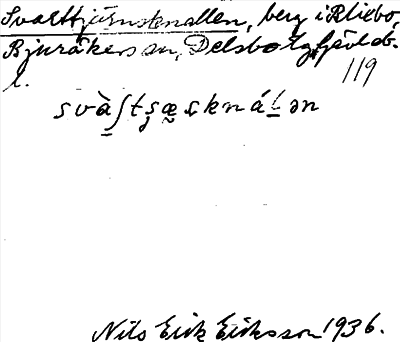 Svarttjärnsknallen, berg i Rliebo,
Bjuråkers sn, Delsbo tg, Gävleb.
l.
119
svà̱ʃtʂæ̰sknáḻən
Nils Erik Eriksson 1936.